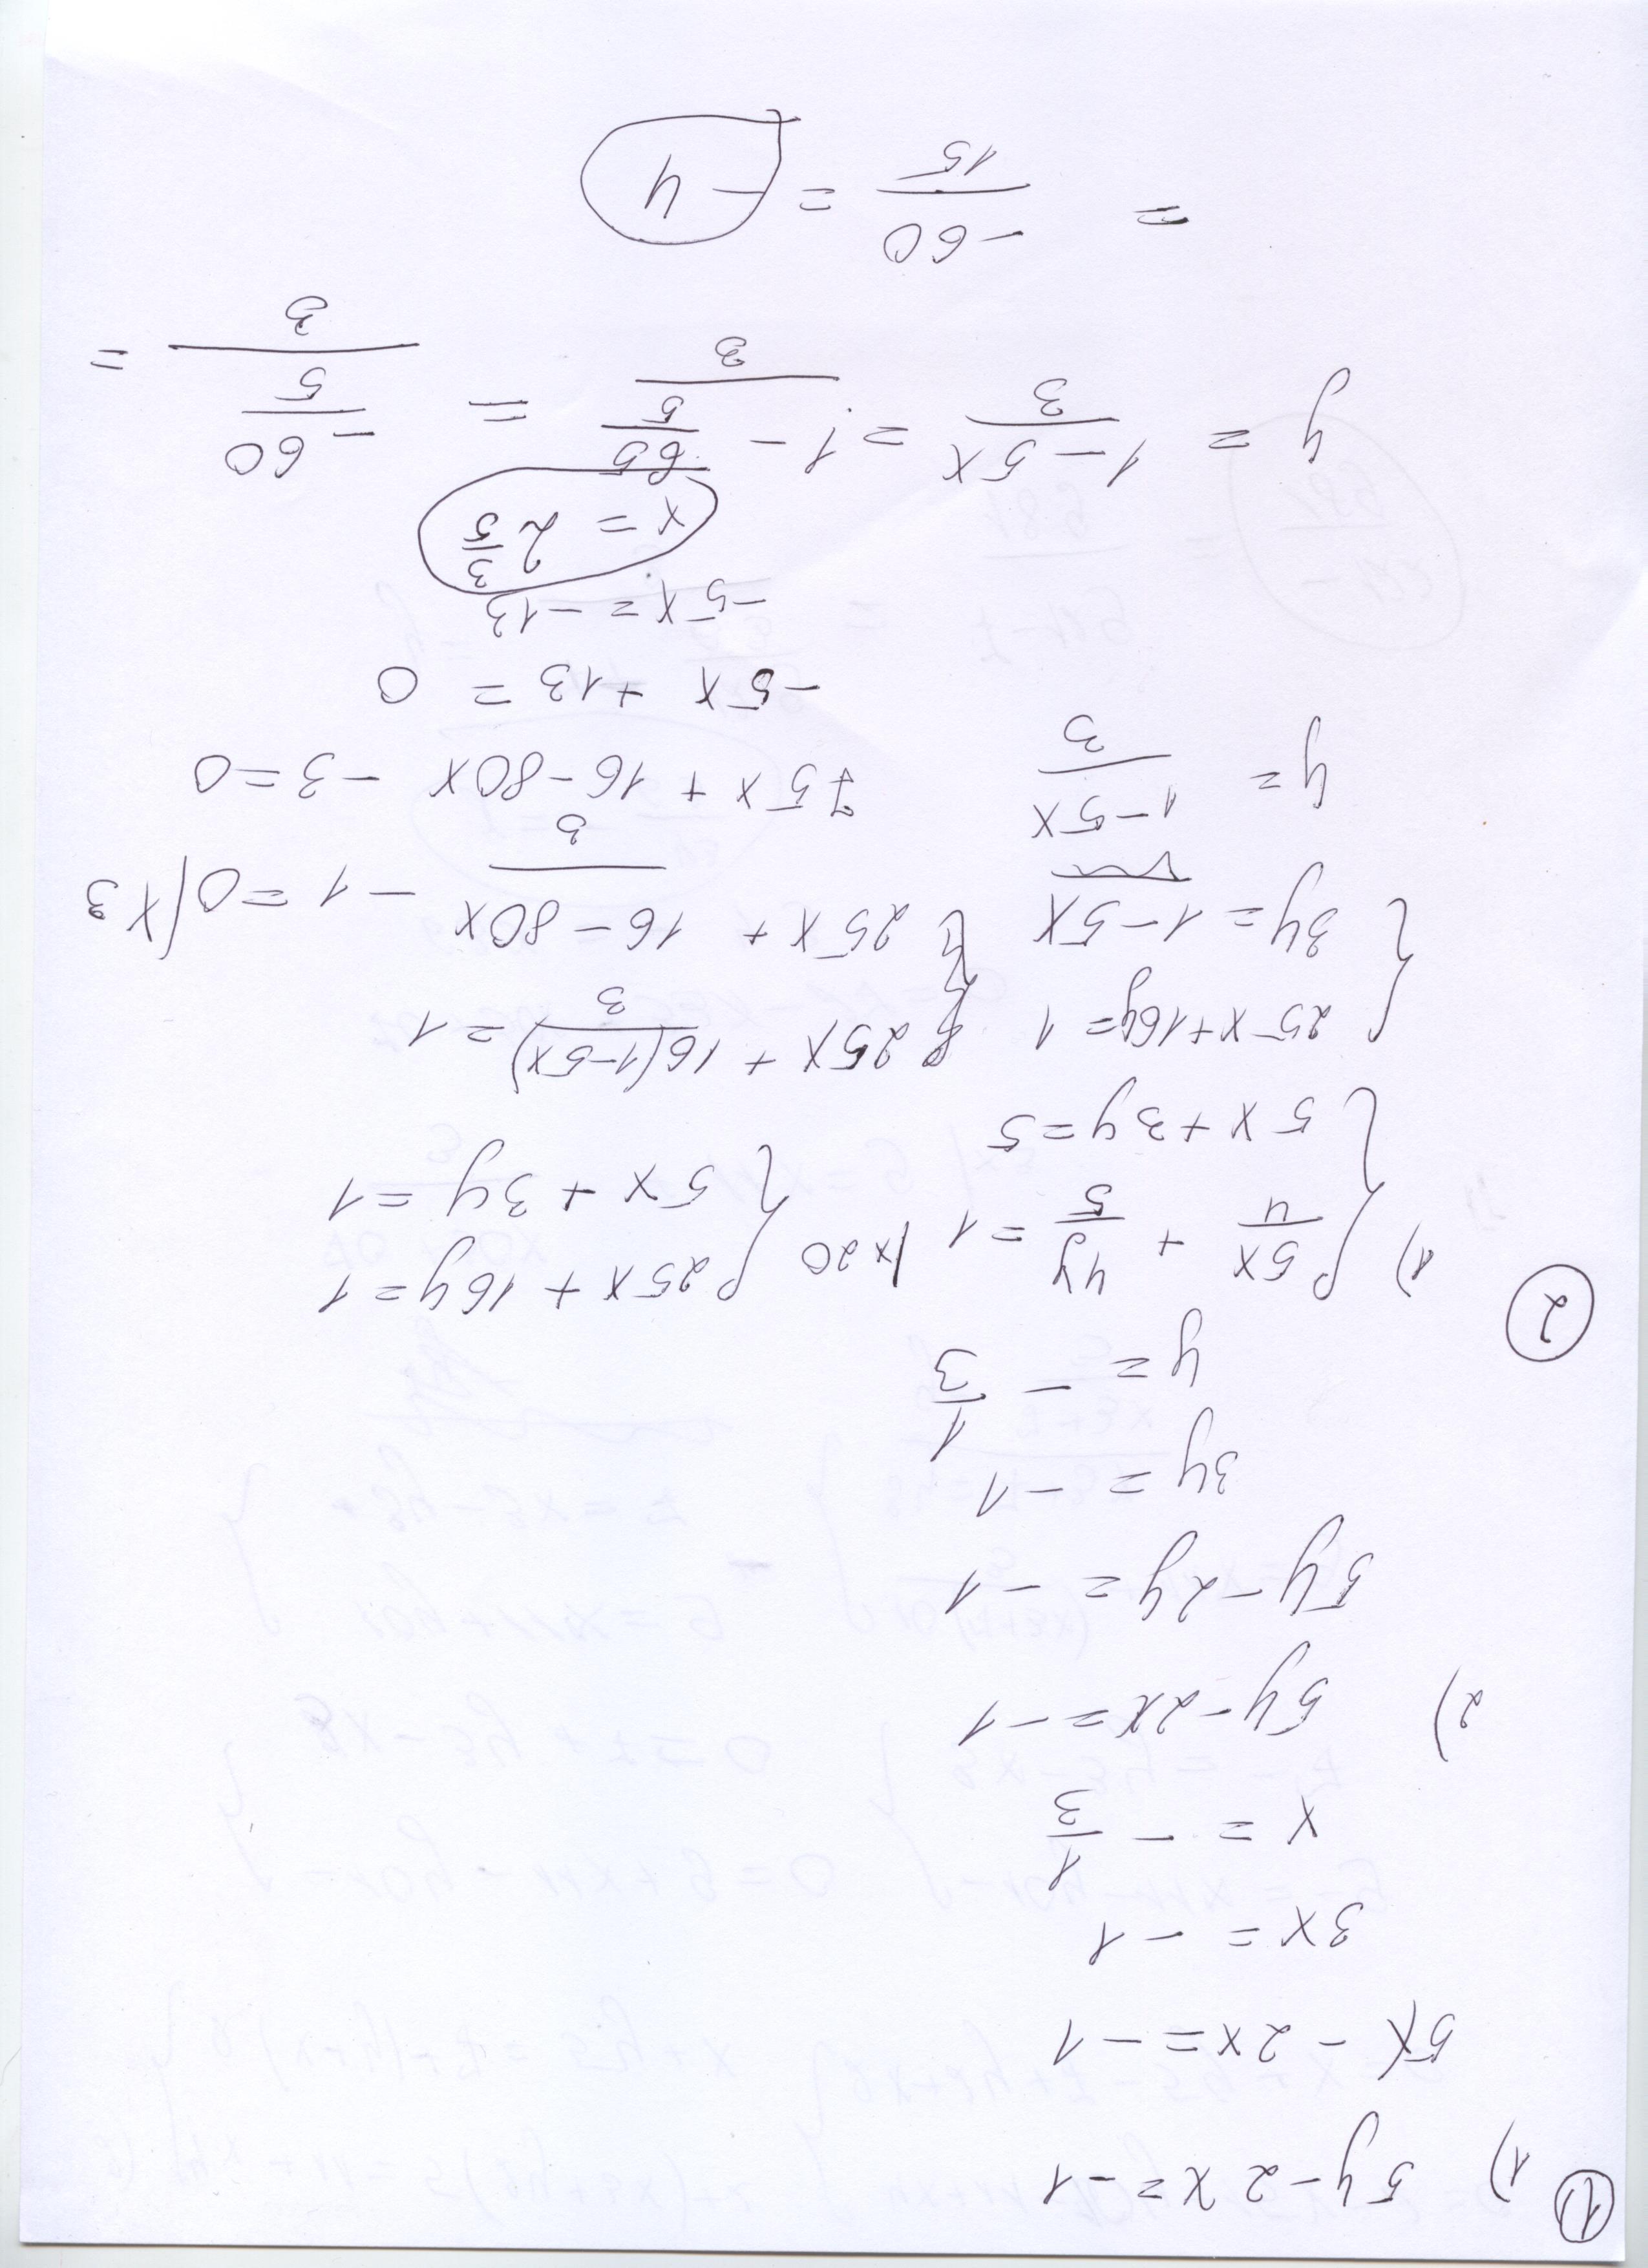 ① 1) 5y - 2x = -1
5x - 2x = -1
3x = -1
x = - 1/3
2) 5y - 2x = -1
5y - 2y = -1
3y = -1
y = - 1/3
② 1) { 5x/4 + 4y/5 = 1 | x20 { 25x + 16y = 1
5x + 3y = 5 5x + 3y = 1
{ 25x + 16y = 1 { 25x + 16(1-5x)/3 = 1
3y = 1 - 5x 25x + (16 - 80x)/3 - 1 = 0 | x3
y = (1-5x)/3 75x + 16 - 80x - 3 = 0
-5x + 13 = 0
-5x = -13
x = 2 3/5
y = (1-5x)/3 = (1 - 65/5)/3 = (-60/5)/3 =
= -60/15 = -4